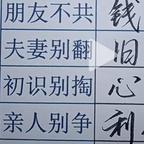 朋友不共钱
夫妻别翻旧
初识别掏心
亲人别争利